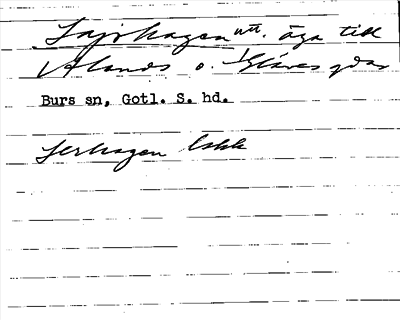 Lajrhagen ntt. äga till
Ålands o. Glaves gdar
Burs sn, Gotl. S. hd.
Lerhagen